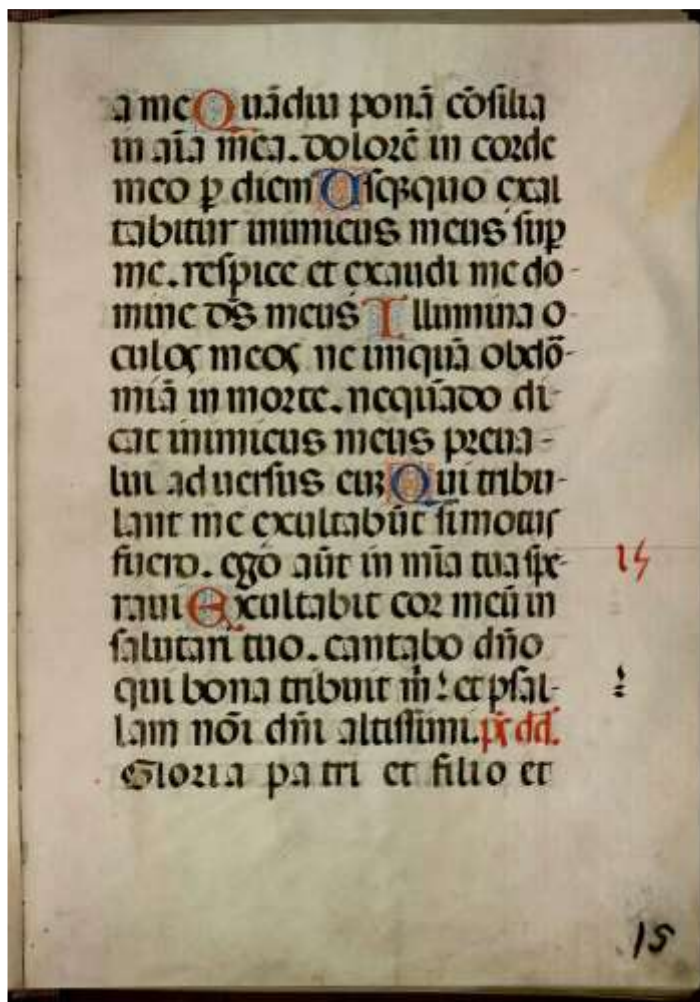 a me Quādiu ponā cōsilia
in aīa mea. dolorē in corde
meo ꝑ diem Usqꝫquo exal
tabitur inimicus meus suꝑ
me. respice et exaudi me do-
mine d̄s meus Illumina o-
culos meos ne unquā obdō-
miā in morte. nequādo di-
cat inimicus meus preua-
lui aduersus euꝫ Qui tribu-
lant me exultabūt si motus
fuero. ego aūt in mīa tua spe-
raui Exultabit cor meū in
salutari tuo. cantabo dn̄o
qui bona tribuit m̄: et psal-
lam nōi dn̄i altissimi. p̄s dd.
Gloria patri et filio et
15
15